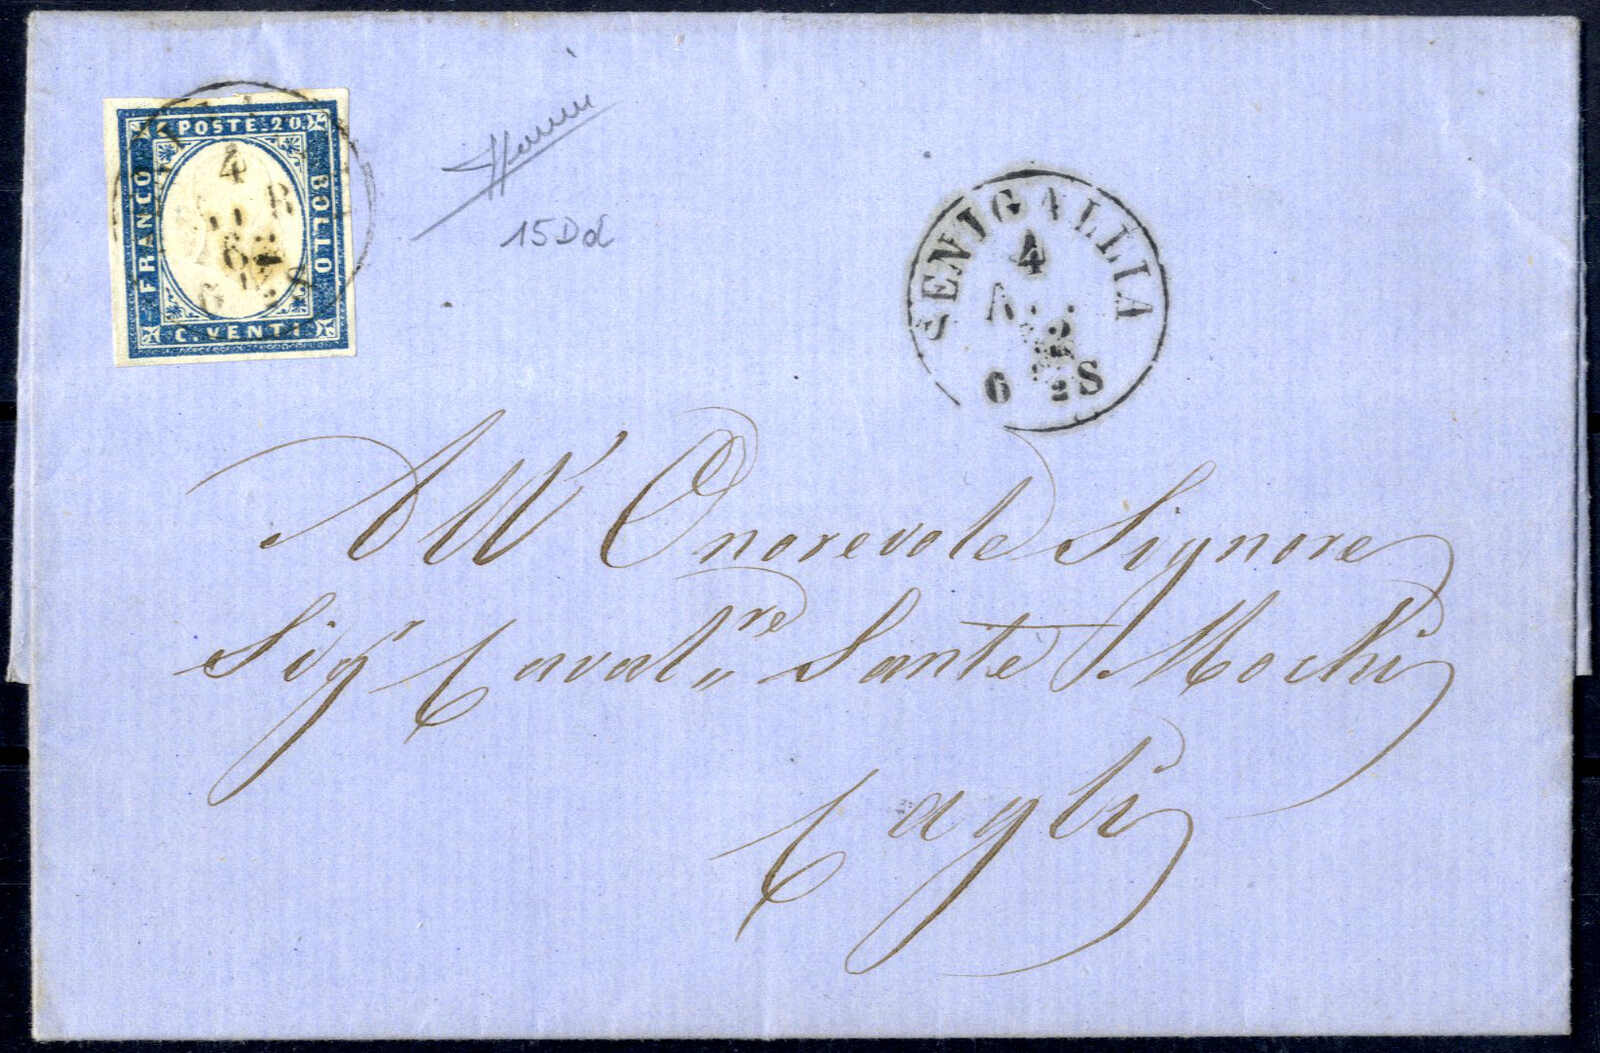 C. POSTE. 20.
FRANCO
BOLLO
C. VENTI
4
6 S
15Dd
SENIGALLIA
4
6 S
All' Onorevole Signore
Sigr Caval,,re Sante Mochi
Cagli